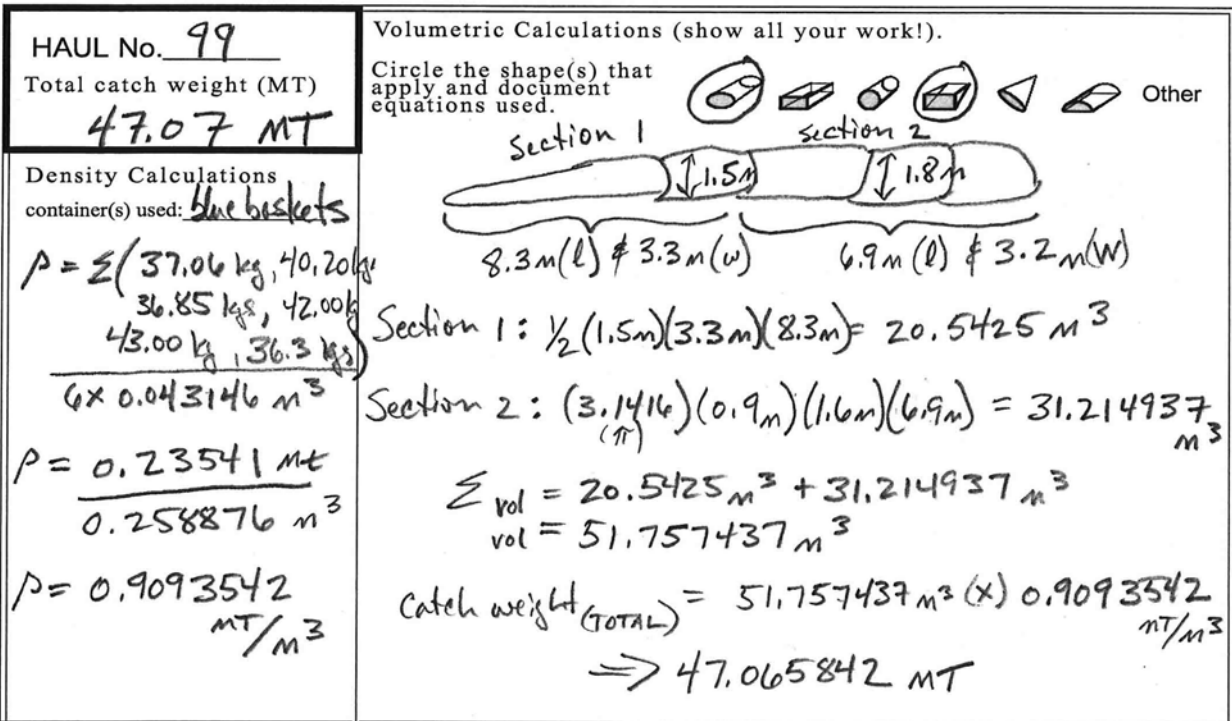 HAUL No. 99
Total catch weight (MT)
47.07 MT
Density Calculations
container(s) used: blue baskets
ρ = Σ(37.06 kg, 40.20 kgs
36.85 kgs, 42.00 kg
43.00 kg, 36.3 kgs)
6 x 0.043146 m³
ρ = 0.23541 mt
0.258876 m³
ρ = 0.9093542
MT/m³
Volumetric Calculations (show all your work!).
Circle the shape(s) that
apply and document
equations used.
Other
section 1
section 2
1.5m
1.8m
8.3m(l) & 3.3m(w)
6.9m(l) & 3.2m(w)
Section 1: ½(1.5m)(3.3m)(8.3m) = 20.5425 m³
Section 2: (3.1416)(0.9m)(1.6m)(6.9m) = 31.214937
(π)
m³
Σ vol = 20.5425 m³ + 31.214937 m³
vol = 51.757437 m³
Catch weight (TOTAL) = 51.757437 m³ (x) 0.9093542
MT/m³
=> 47.065842 MT